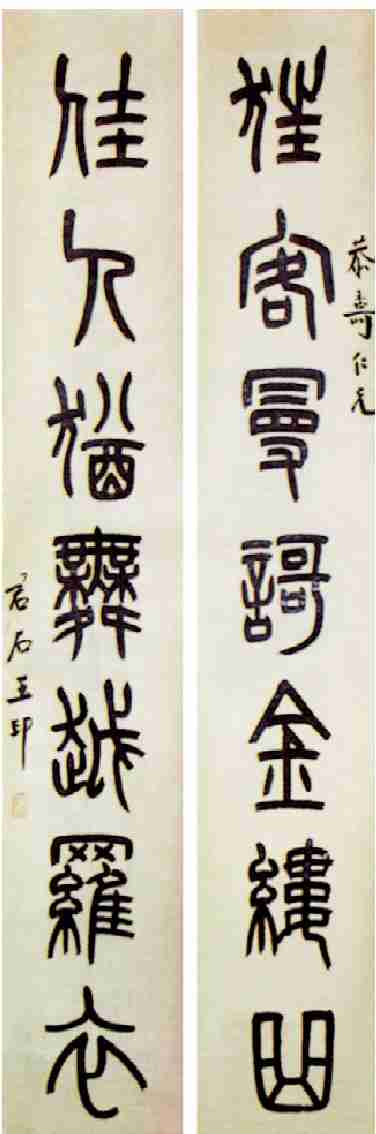 狂客曼謌金縷曲
恭壽仁兄
佳人猶舞越羅衣
石王印